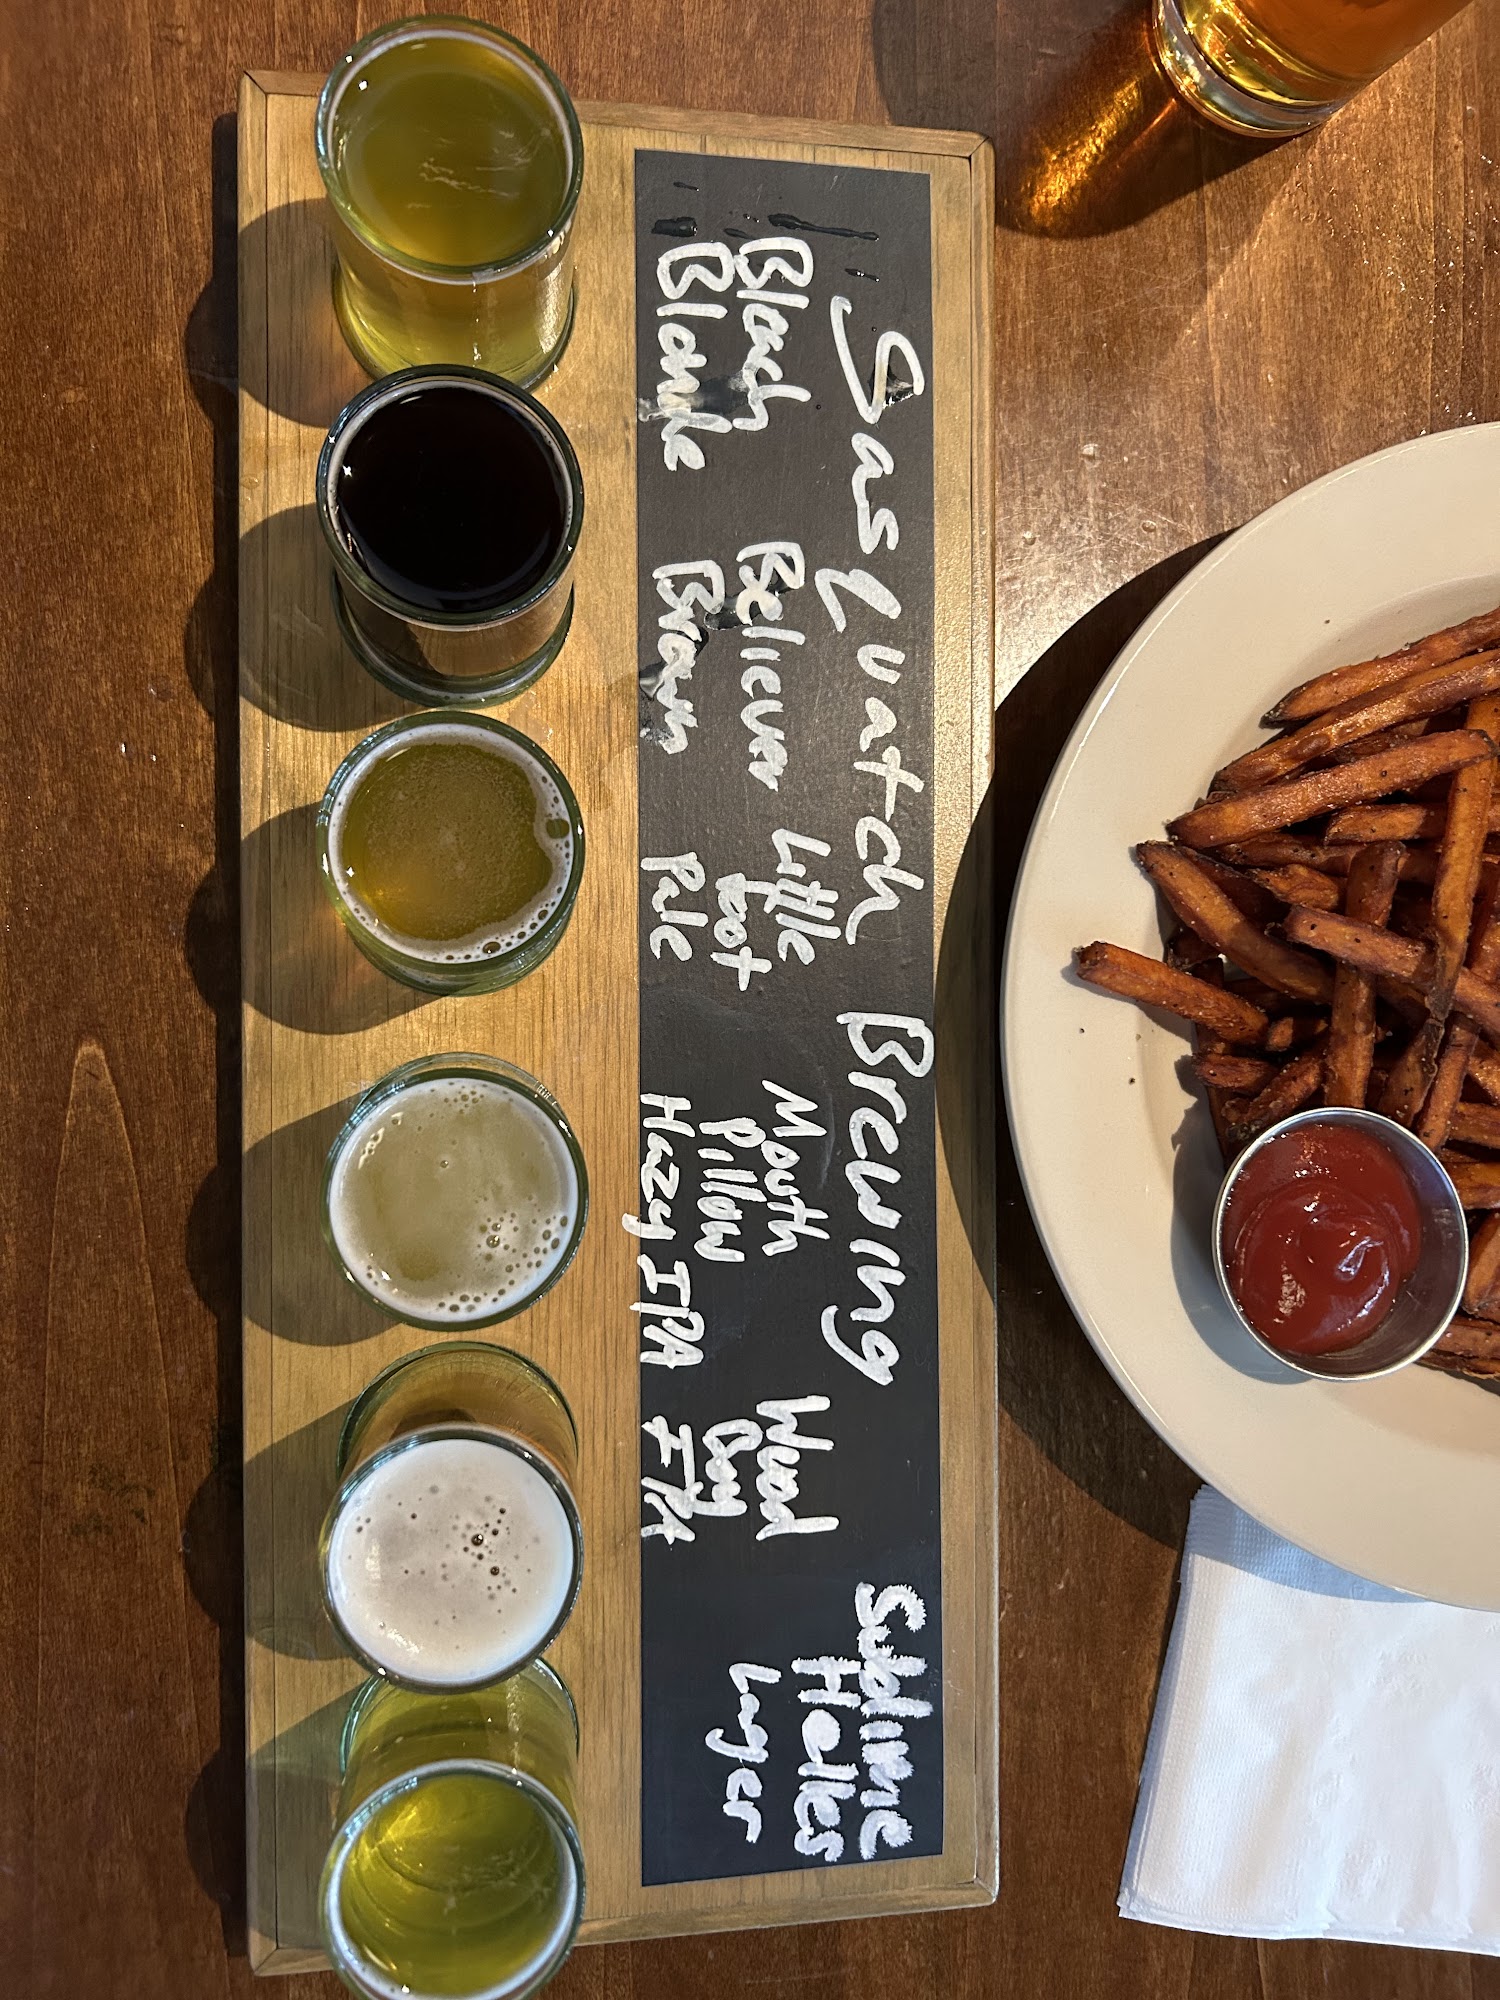 Sasquatch Brewing
Beach
Blonde
Believer
Brown
Little
Foot
Pale
Mouth
Pillow
Hazy IPA
Weird
Guy
IPA
Sublime
Helles
Lager